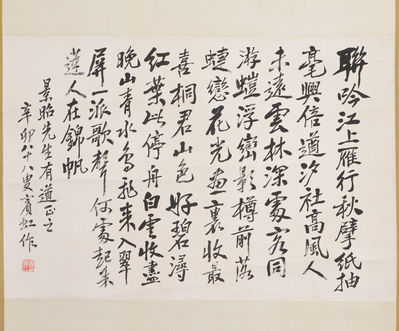 聯吟江上雁行秋擘紙抽
毫興倍遒汐社高風人
未遠雲林深處客同
游螘浮巒影樽前落
蜨戀花光畫裏收最
喜桐君山色好碧潯
紅葉此停舟白雲收盡
晚山青水鳥飛來入翠
屏一派歌聲何處起采
蓮人在錦帆
景昭先生有道正之
辛卯八十八叟賓虹作